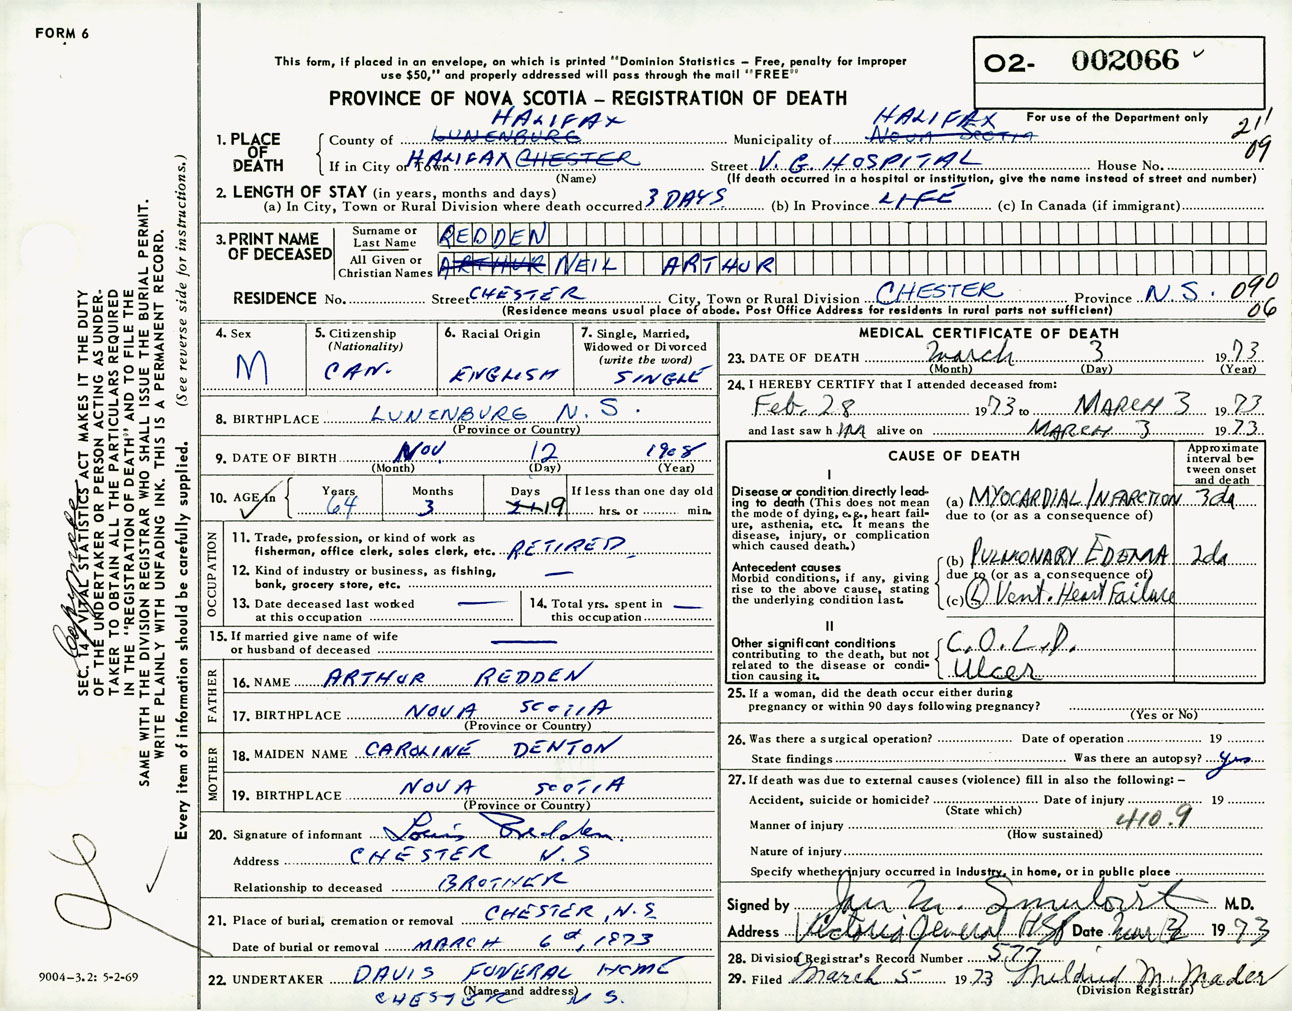 FORM 6
This form, if placed in an envelope, on which is printed "Dominion Statistics – Free, penalty for improper
use $50," and properly addressed will pass through the mail "FREE"
PROVINCE OF NOVA SCOTIA – REGISTRATION OF DEATH
02- 002066
For use of the Department only
211
09
HALIFAX HALIFAX
1. PLACE OF DEATH County of LUNENBURG Municipality of NOVA SCOTIA
If in City or Town HALIFAX CHESTER Street V. G. HOSPITAL House No.
(Name) (If death occurred in a hospital or institution, give the name instead of street and number)
2. LENGTH OF STAY (in years, months and days)
(a) In City, Town or Rural Division where death occurred 3 DAYS (b) In Province LIFE (c) In Canada (if immigrant)
3. PRINT NAME OF DECEASED
Surname or Last Name REDDEN
All Given or Christian Names ARTHUR NEIL ARTHUR
RESIDENCE No. Street CHESTER City, Town or Rural Division CHESTER Province N.S. 090
06
(Residence means usual place of abode. Post Office Address for residents in rural parts not sufficient)
4. Sex M
5. Citizenship (Nationality) CAN.
6. Racial Origin ENGLISH
7. Single, Married, Widowed or Divorced (write the word) SINGLE
8. BIRTHPLACE LUNENBURG N.S.
(Province or Country)
9. DATE OF BIRTH NOV 12 1908
(Month) (Day) (Year)
10. AGE in Years 64 Months 3 Days 21 19 If less than one day old
hrs. or min.
OCCUPATION
11. Trade, profession, or kind of work as
fisherman, office clerk, sales clerk, etc. RETIRED
12. Kind of industry or business, as fishing,
bank, grocery store, etc. —
13. Date deceased last worked
at this occupation —
14. Total yrs. spent in
this occupation —
15. If married give name of wife
or husband of deceased —
FATHER
16. NAME ARTHUR REDDEN
17. BIRTHPLACE NOVA SCOTIA
(Province or Country)
MOTHER
18. MAIDEN NAME CAROLINE DENTON
19. BIRTHPLACE NOVA SCOTIA
(Province or Country)
20. Signature of informant Louis Redden.
Address CHESTER N.S
Relationship to deceased BROTHER
21. Place of burial, cremation or removal CHESTER, N.S
Date of burial or removal MARCH 6, 1973
22. UNDERTAKER DAVIS FUNERAL HOME
(Name and address)
CHESTER N S.
MEDICAL CERTIFICATE OF DEATH
23. DATE OF DEATH March 3 1973
(Month) (Day) (Year)
24. I HEREBY CERTIFY that I attended deceased from:
Feb. 28 1973 to MARCH 3 1973
and last saw him alive on MARCH 3 1973
CAUSE OF DEATH
Approximate interval between onset and death
I
Disease or condition directly lead-
ing to death (This does not mean
the mode of dying, e.g., heart fail-
ure, asthenia, etc. It means the
disease, injury, or complication
which caused death.)
(a) MYOCARDIAL INFARCTION 3da
due to (or as a consequence of)
Antecedent causes
Morbid conditions, if any, giving
rise to the above cause, stating
the underlying condition last.
(b) PULMONARY EDEMA 2da
due to (or as a consequence of)
(c) (L) Vent. Heart Failure
II
Other significant conditions
contributing to the death, but not
related to the disease or condi-
tion causing it.
C.O.L.D.
Ulcer
25. If a woman, did the death occur either during
pregnancy or within 90 days following pregnancy?
(Yes or No)
26. Was there a surgical operation? Date of operation 19
State findings Was there an autopsy? yes
27. If death was due to external causes (violence) fill in also the following: –
Accident, suicide or homicide? Date of injury 19
(State which)
Manner of injury 410.9
(How sustained)
Nature of injury
Specify whether injury occurred in Industry, in home, or in public place
Signed by M.D.
Address Victoria General Date Mar 1973
28. Division Registrar's Record Number 577
29. Filed March 5 1973 Mildred M. Mader
(Division Registrar)
SEC. 14 VITAL STATISTICS ACT MAKES IT THE DUTY
OF THE UNDERTAKER OR PERSON ACTING AS UNDER-
TAKER TO OBTAIN ALL THE PARTICULARS REQUIRED
IN THE "REGISTRATION OF DEATH" AND TO FILE THE
SAME WITH THE DIVISION REGISTRAR WHO SHALL ISSUE THE BURIAL PERMIT.
WRITE PLAINLY WITH UNFADING INK. THIS IS A PERMANENT RECORD.
Every item of information should be carefully supplied. (See reverse side for instructions.)
9004–3.2: 5-2-69